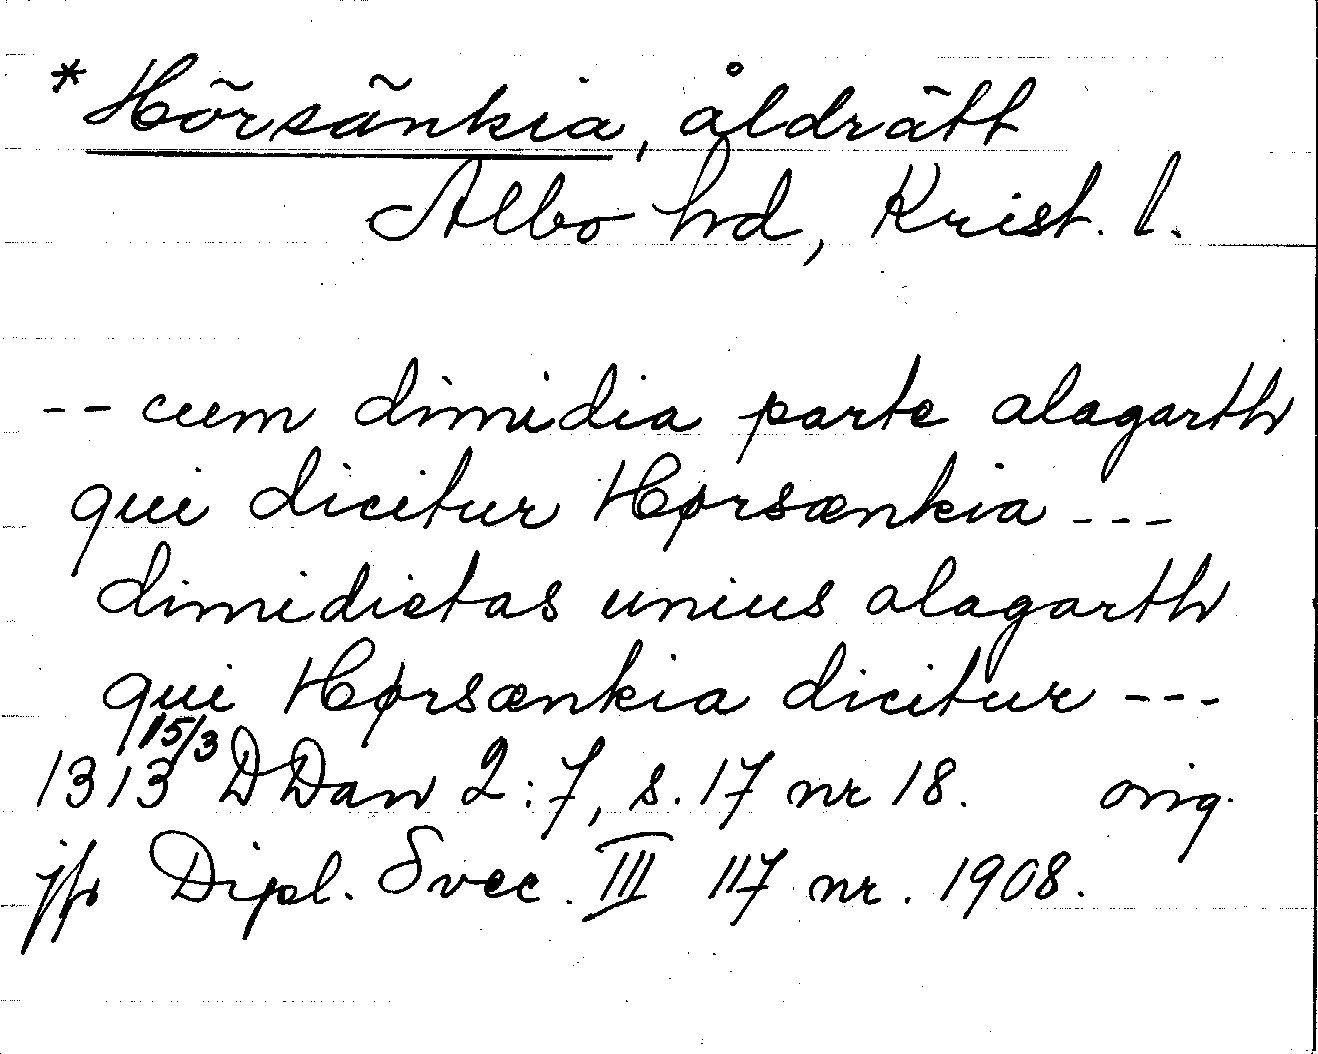 * Hörsänkia, åldrätt
Albo hd, Krist. l.
-- cum dimidia parte alagarth
qui dicitur Hørsænkia ---
dimidietas unius alagarth
qui Hørsænkia dicitur ---
1313 15/3 DDan 2:7, s. 17 nr 18. orig.
jfr Dipl. Svec. III 117 nr. 1908.